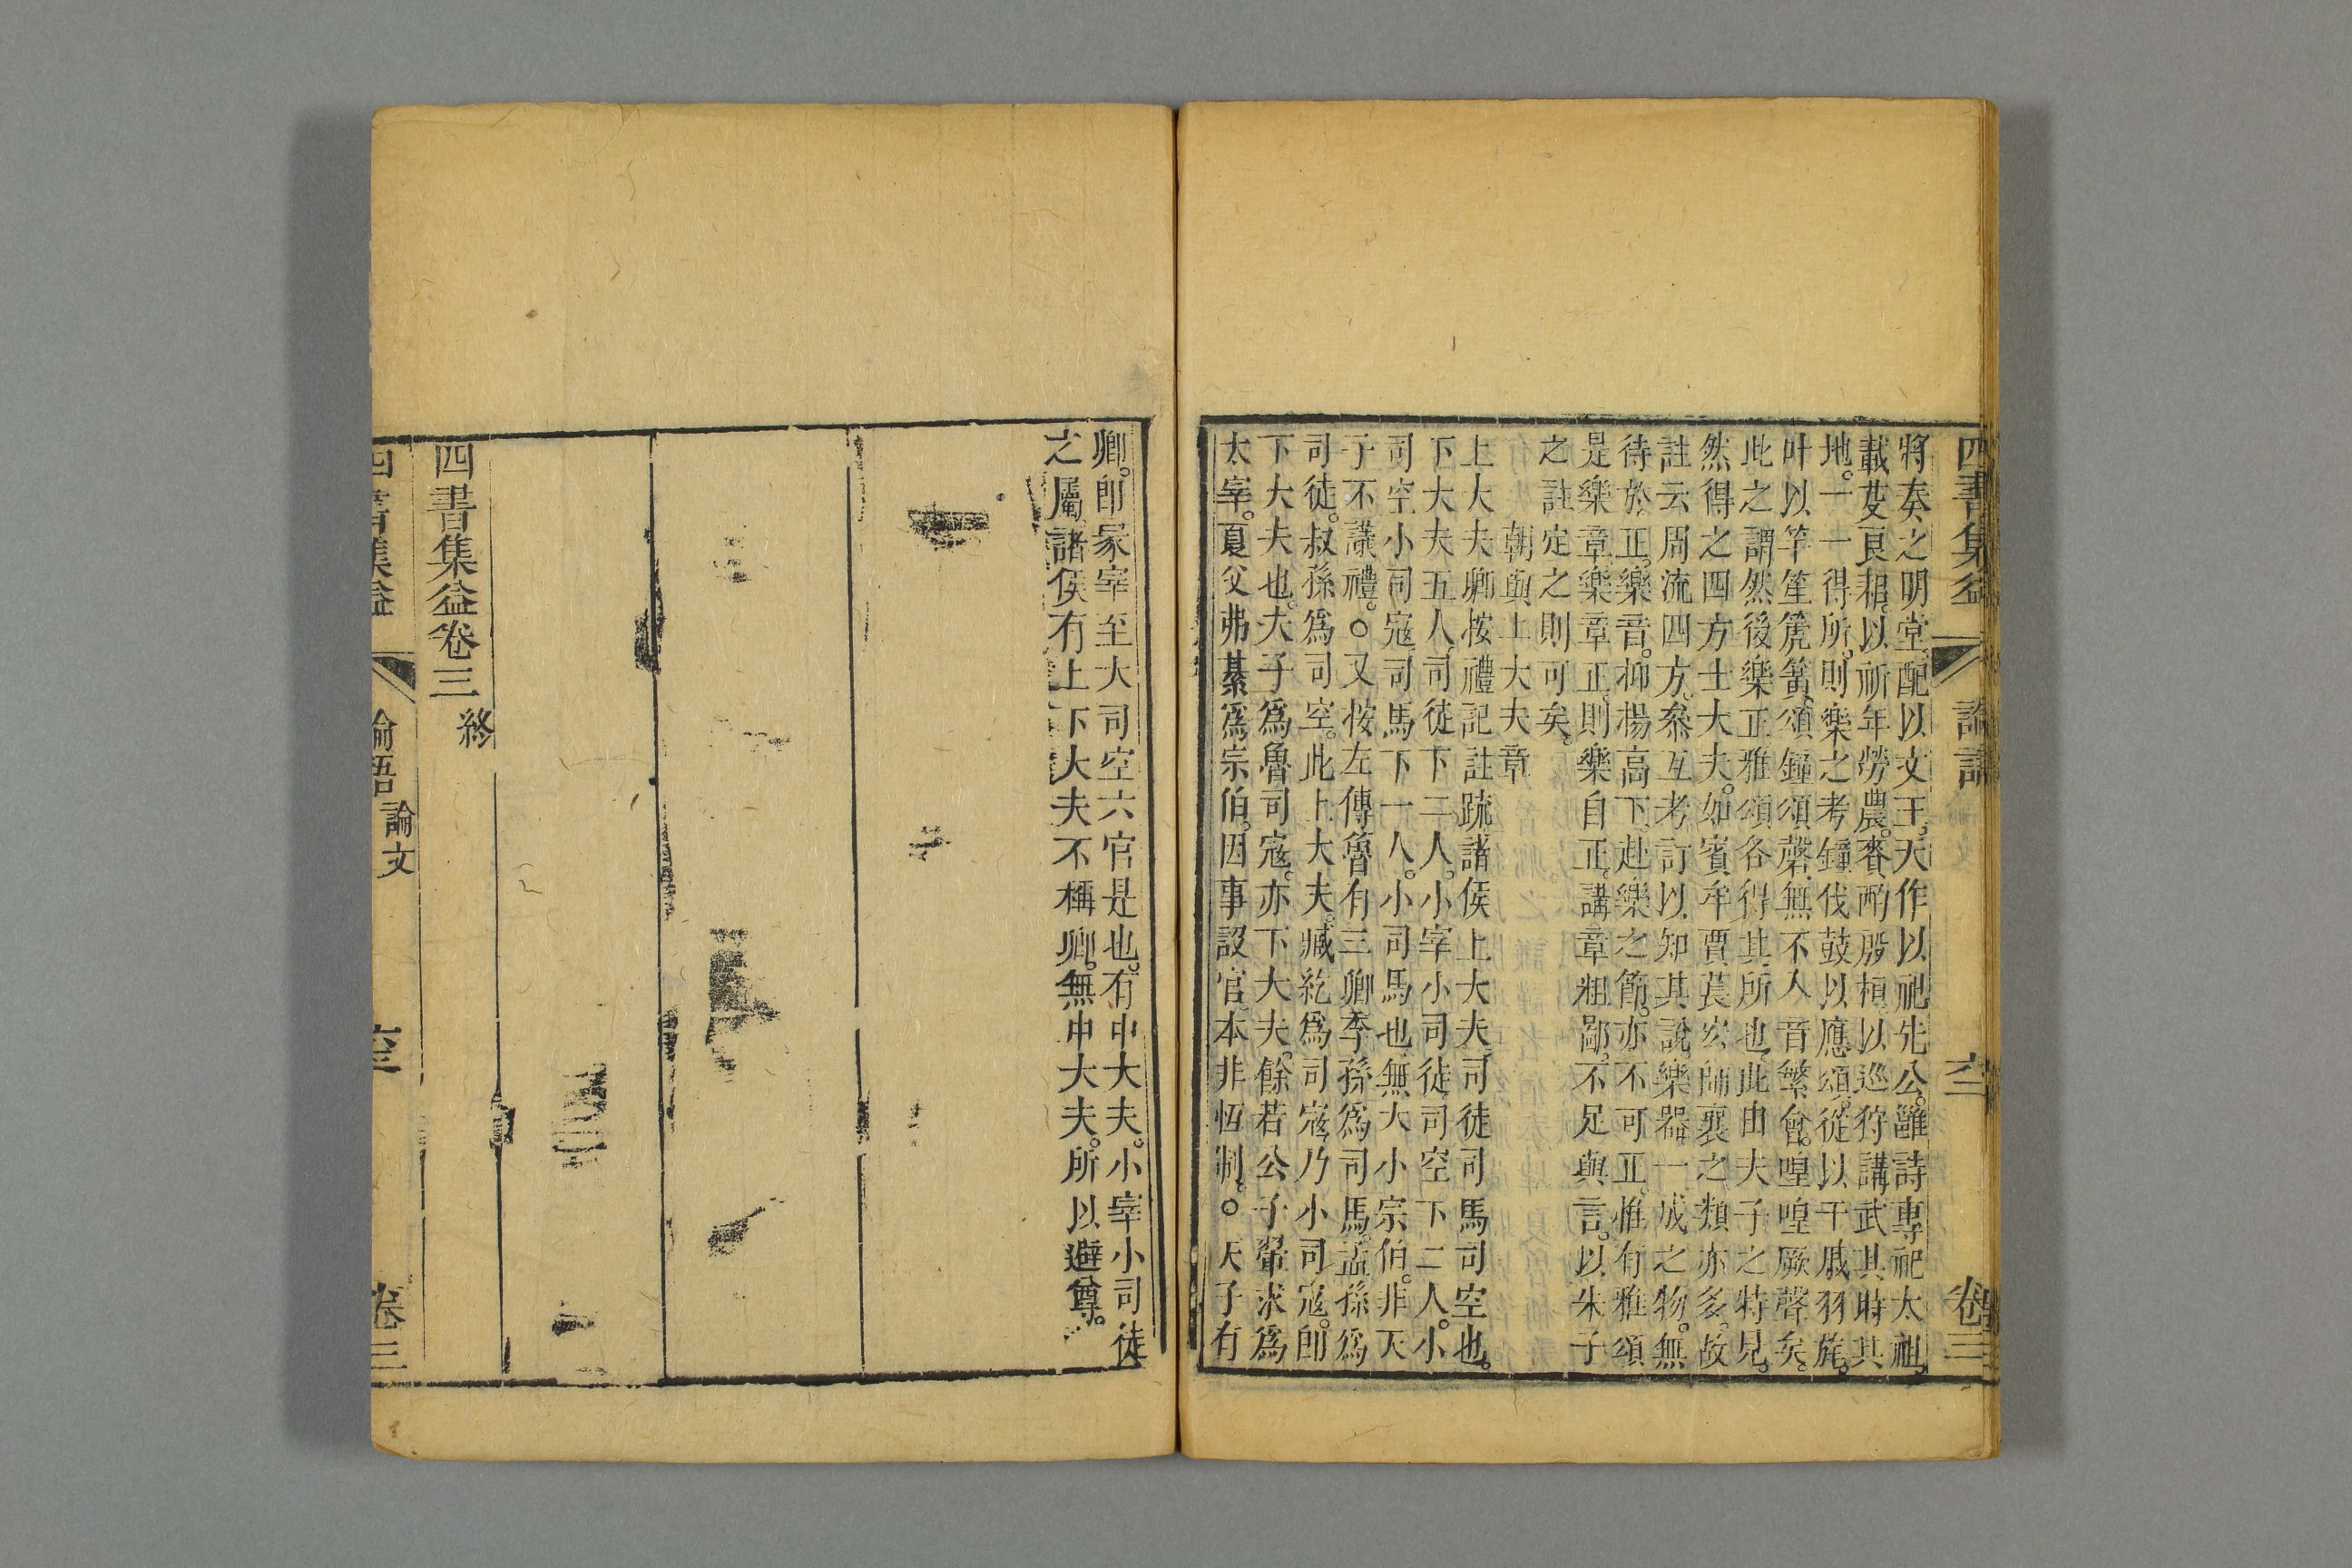 四書集益
論語
卷三
將奏之明堂配以文王天作以祀先公雝詩專祀太祖
載芟良耜以祈年勞農賚酌般桓以巡狩講武其時其
地一一得所則樂之考鐘伐鼓以應頌從以干戚羽旄
叶以竽笙箎簧頌鐘頌磬無不人音繁會喤喤厥聲矣
此之謂然後樂正雅頌各得其所也此由夫子之特見
然得之四方士大夫如賓牟賈萇宏師襄之類亦多故
註云周流四方叅互考訂以知其說樂器一成之物無
待於正樂音抑楊高下赴樂之節亦不可正惟有雅頌
是樂章樂章正則樂自正講章粗鄙不足與言以朱子
之註定之則可矣
朝與上大夫章
上大夫卿按禮記註疏諸侯上大夫司徒司馬司空也
下大夫五人司徒下二人小宰小司徒司空下二人小
司空小司寇司馬下一人小司馬也無大小宗伯非天
子不議禮○又按左傳魯有三卿季孫爲司馬孟孫爲
司徒叔孫爲司空此上大夫臧紇爲司寇乃小司寇卽
下大夫也夫子爲魯司寇亦下大夫餘若公子翬求爲
太宰夏父弗綦爲宗伯因事設官本非恆制○天子有
卿卽冢宰至大司空六官是也有中大夫小宰小司徒
之屬諸侯有上下大夫不稱卿無中大夫所以避尊
四書集益卷三 終
四書集益
論語 論文
卷三